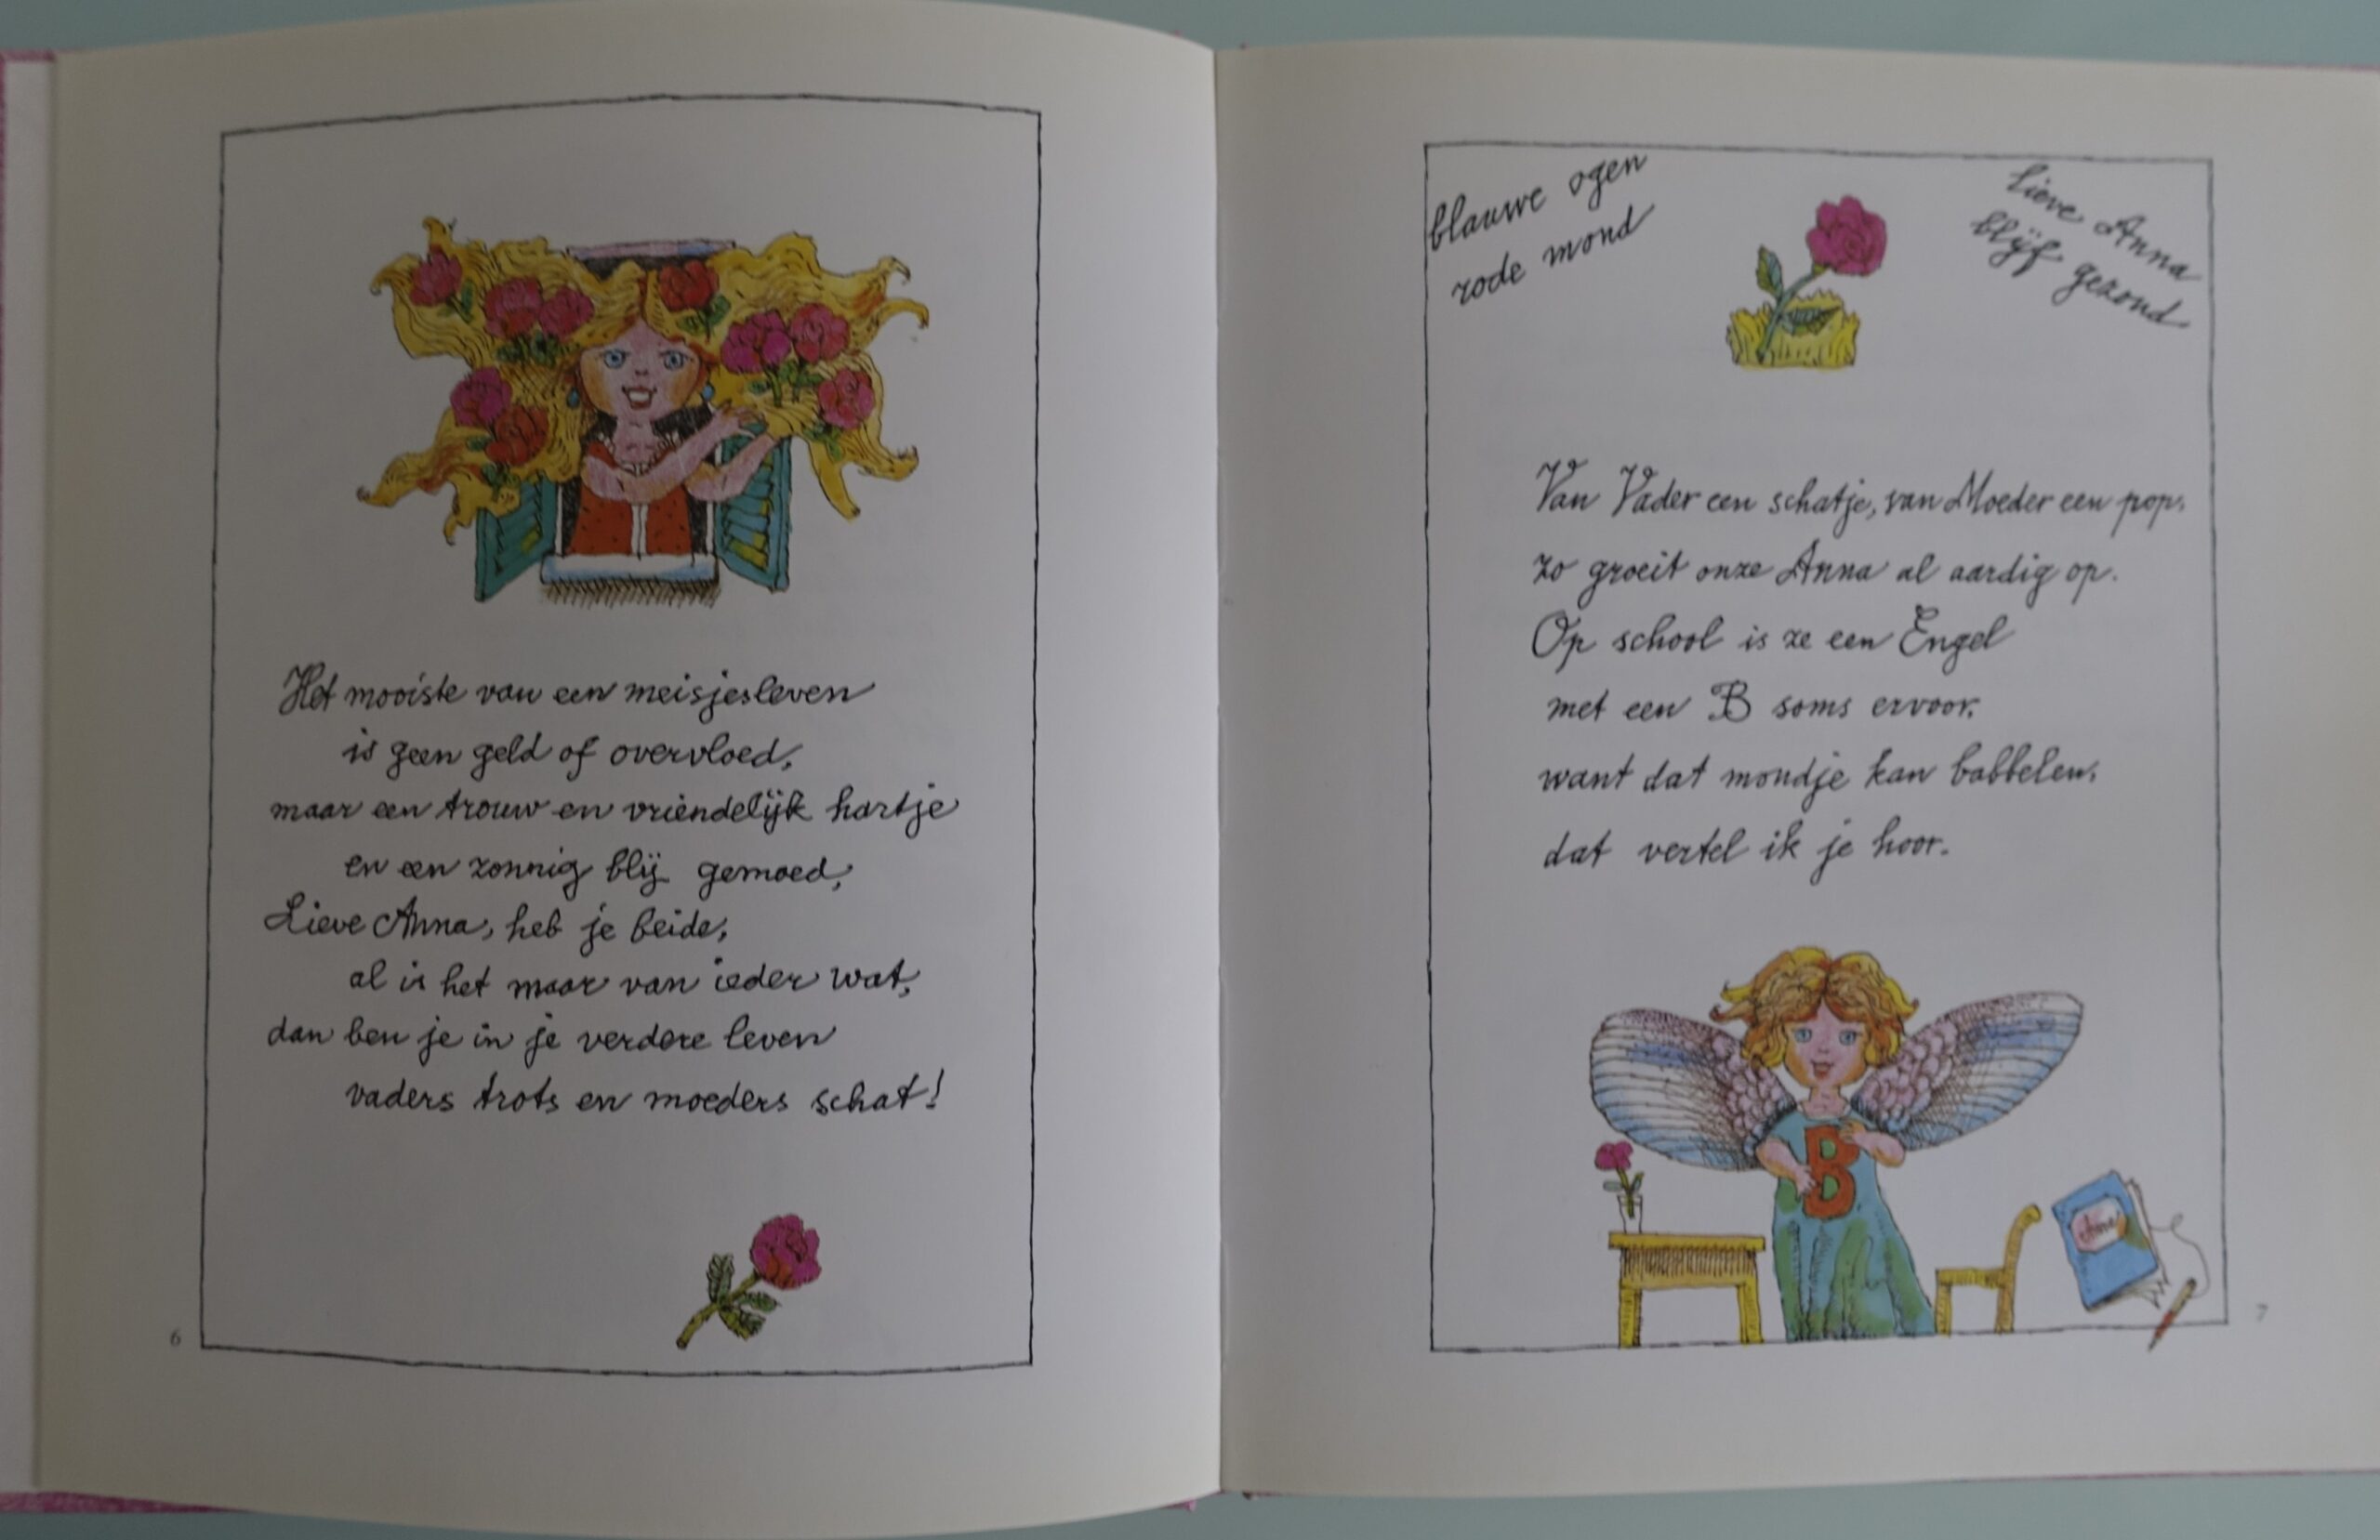 Het mooiste van een meisjesleven
is geen geld of overvloed,
maar een trouw en vriendelijk hartje
en een zonnig blij gemoed,
Lieve Anna, heb je beide,
al is het maar van ieder wat,
dan ben je in je verdere leven
vaders trots en moeders schat!
6
blauwe ogen
rode mond
Lieve Anna
blijf gezond
Van Vader een schatje, van Moeder een pop,
zo groeit onze Anna al aardig op.
Op school is ze een Engel
met een B soms ervoor,
want dat mondje kan babbelen,
dat vertel ik je hoor.
B
Anna
7